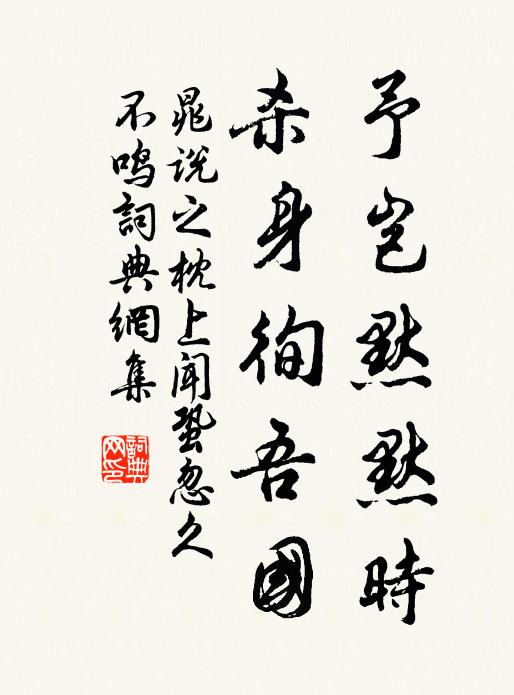 予岂默默時
杀身徇吾國
晁说之枕上闻蛩忽久
不鸣詞典網集
詞典
网印